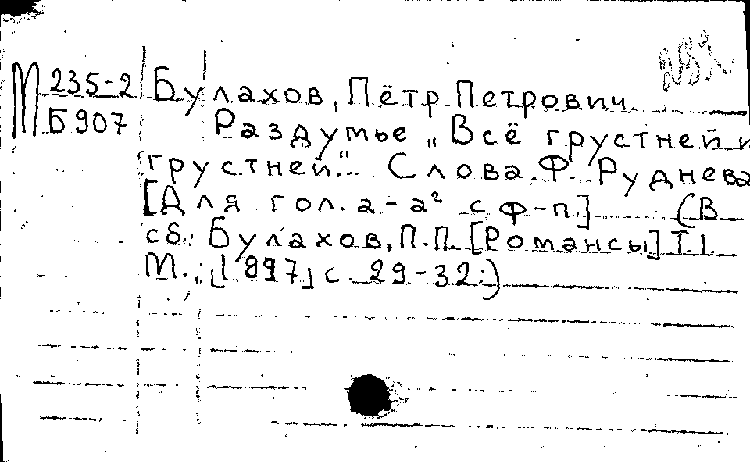 М 235-2 Булахов, Пётр Петрович
Б 907 Раздумье „Всё грустней и
грустней." Слова Ф. Руднева
[Для гол. а-а² с ф-п.] (В
сб.: Булахов, П.П. [Романсы] Т.1
М., [1897] с. 29-32.)